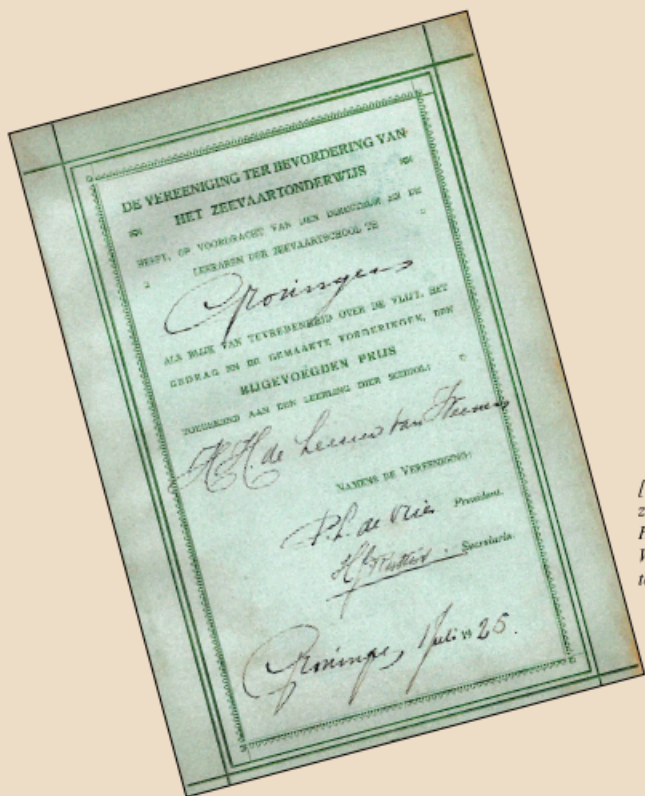 DE VEREENIGING TER BEVORDERING VAN
HET ZEEVAARTONDERWIJS
HEEFT, OP VOORDRACHT VAN DEN DIRECTEUR EN DE
LEERAREN DER ZEEVAARTSCHOOL TE
Groningen
ALS BLIJK VAN TEVREDENHEID OVER DE VLIJT, HET
GEDRAG EN DE GEMAAKTE VORDERINGEN, DEN
BIJGEVOEGDEN PRIJS
TOEGEKEND AAN DEN LEERLING DIER SCHOOL:
H. H. de Leeuw van
NAMENS DE VEREENIGING:
P. L. de Vries President.
Secretaris.
Groningen, 1 Juli 1925.